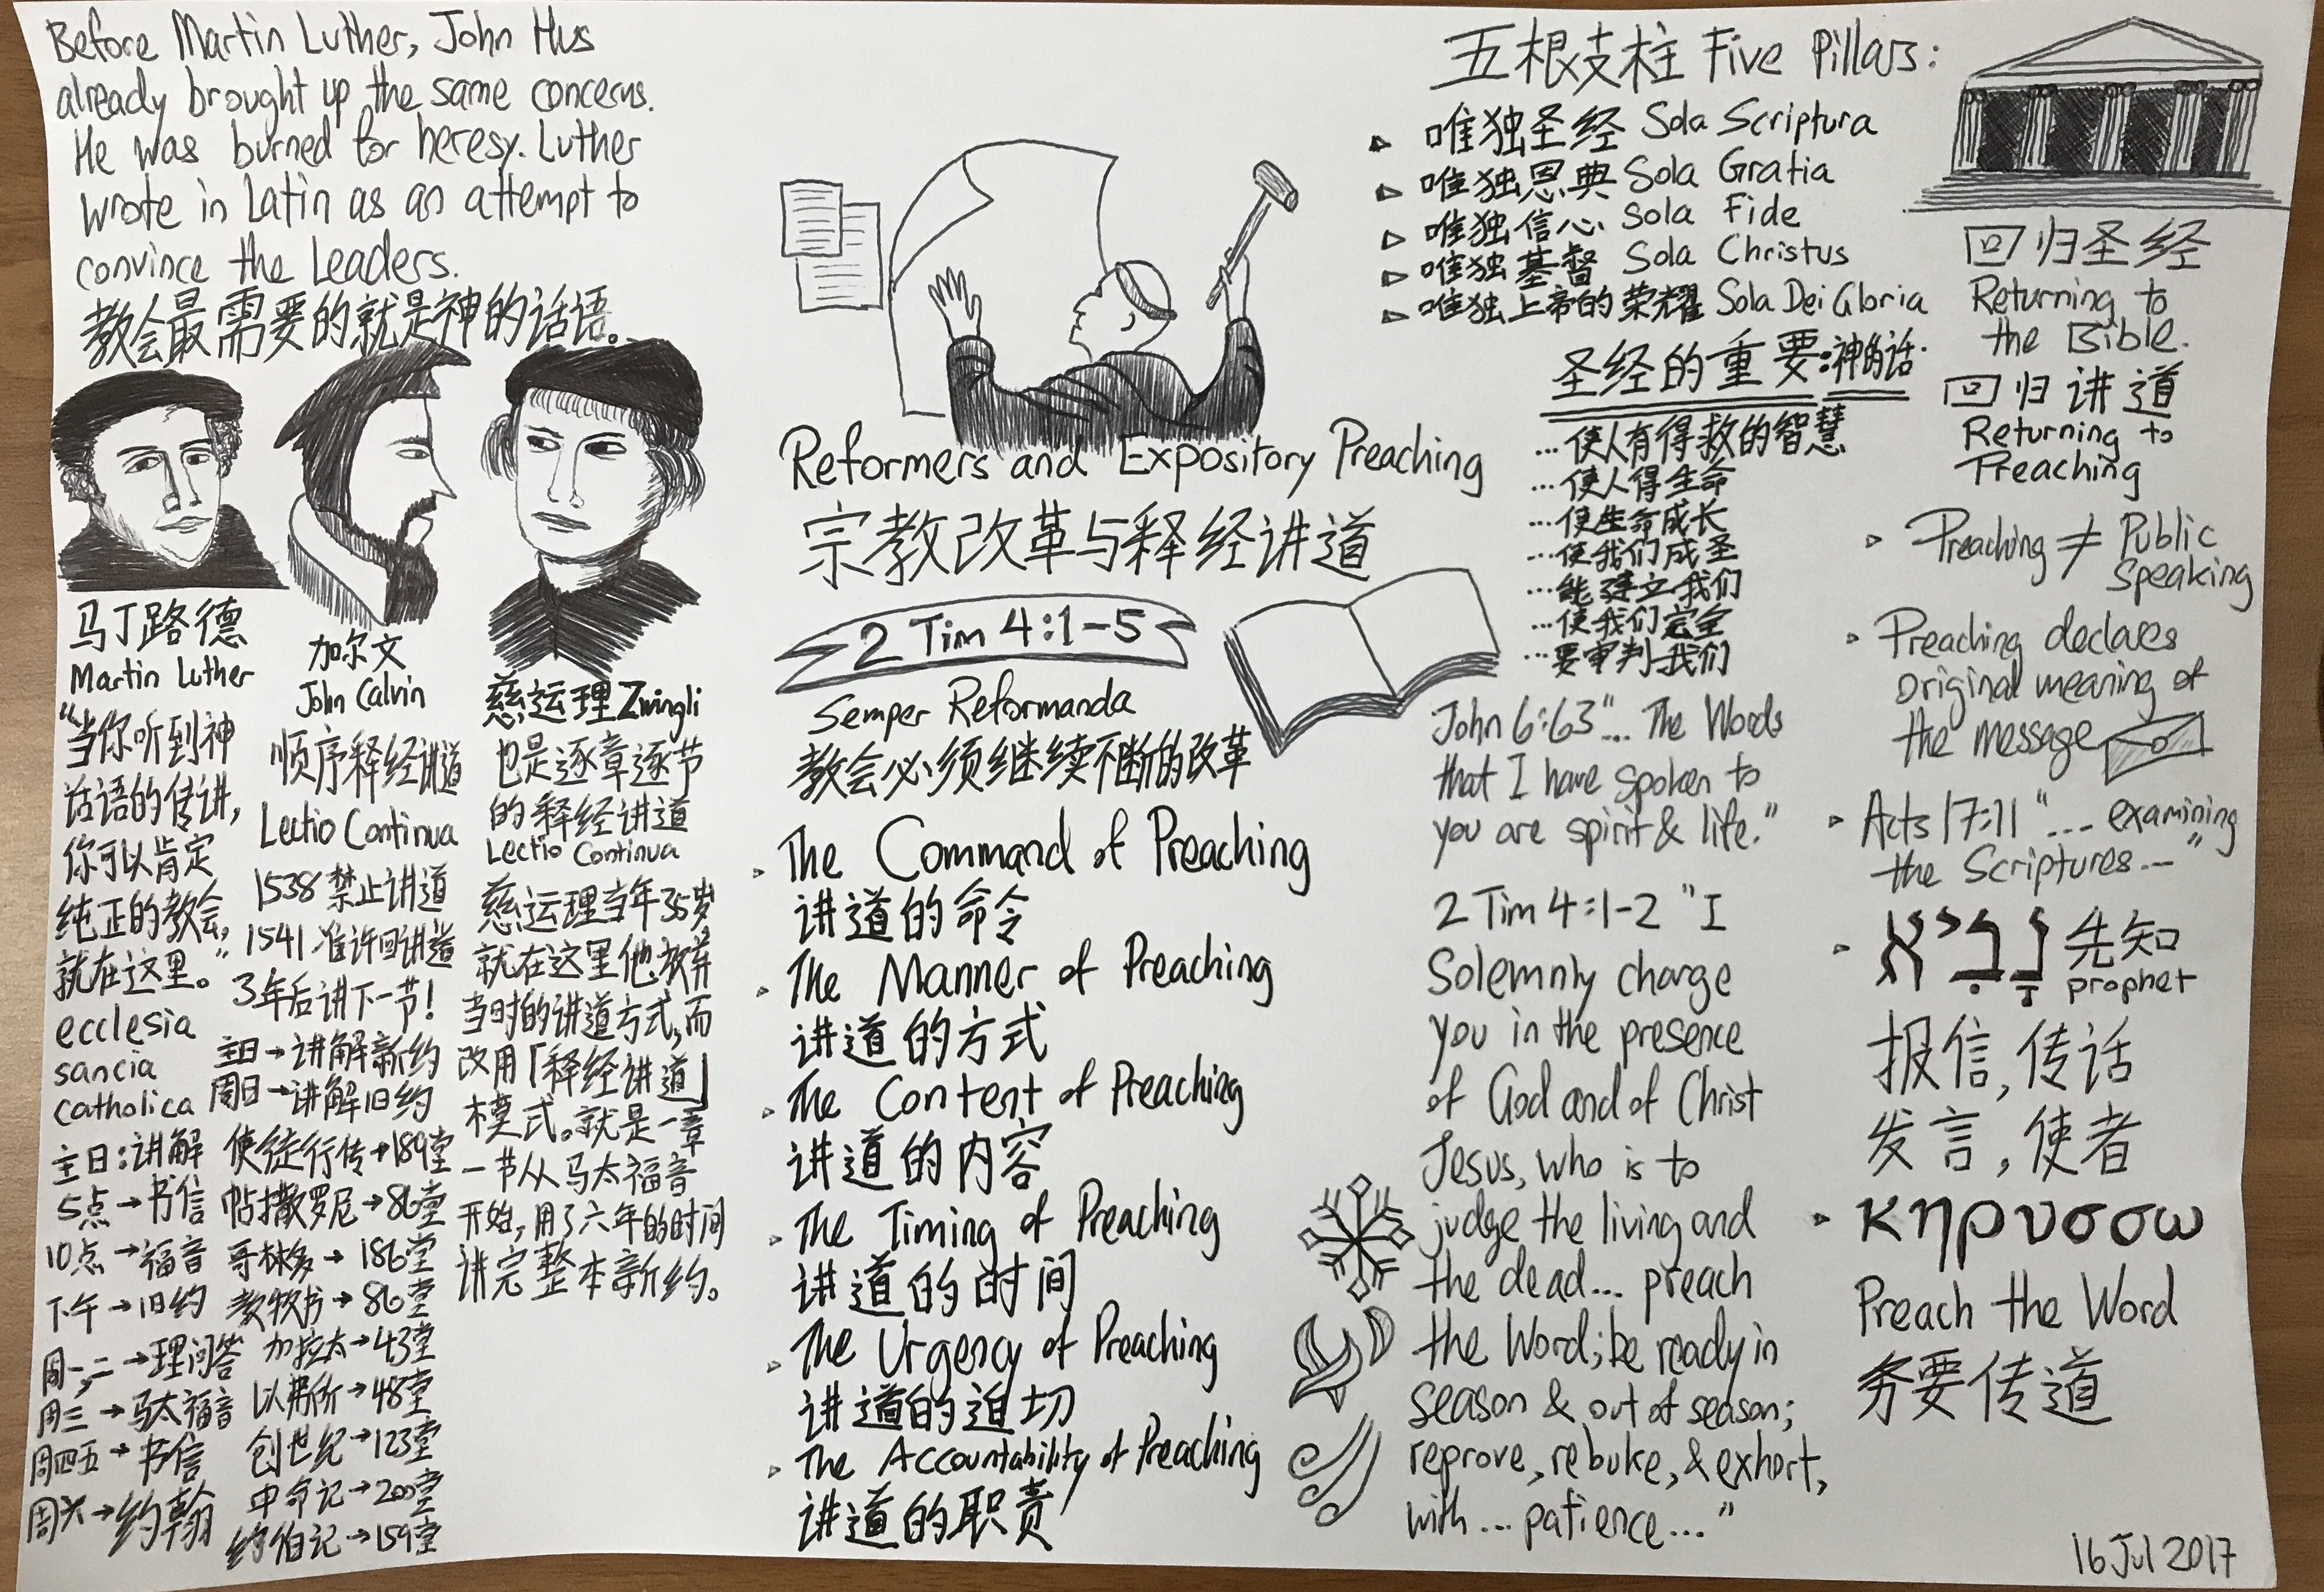 Before Martin Luther, John Hus
already brought up the same concerns.
He was burned for heresy. Luther
wrote in Latin as an attempt to
convince the Leaders.
教会最需要的就是神的话语。
马丁路德
Martin Luther
“当你听到神
话语的传讲,
你可以肯定
纯正的教会,
就在这里。”
ecclesia
sancia
catholica
主日:讲解
5点→书信
10点→福音
下午→旧约
周一,二→理问答
周三→马太福音
周四五→书信
周六→约翰
加尔文
John Calvin
顺序释经讲道
Lectio Continua
1538 禁止讲道
1541 准许回讲道
3年后讲下一节!
主日→讲解新约
周日→讲解旧约
使徒行传→189堂
帖撒罗尼→86堂
哥林多→186堂
教牧书→86堂
加拉太→43堂
以弗所→48堂
创世纪→123堂
申命记→200堂
约伯记→159堂
慈运理 Zwingli
也是逐章逐节
的释经讲道
Lectio Continua
慈运理当年35岁
就在这里他放弃
当时的讲道方式,而
改用「释经讲道」
模式。就是一章
一节从马太福音
开始,用了六年的时间
讲完整本新约。
Reformers and Expository Preaching
宗教改革与释经讲道
2 Tim 4:1-5
Semper Reformanda
教会必须继续不断的改革
▹ The Command of Preaching
讲道的命令
▹ The Manner of Preaching
讲道的方式
▹ The Content of Preaching
讲道的内容
▹ The Timing of Preaching
讲道的时间
▹ The Urgency of Preaching
讲道的迫切
▹ The Accountability of Preaching
讲道的职责
五根支柱 Five Pillars:
▹ 唯独圣经 Sola Scriptura
▹ 唯独恩典 Sola Gratia
▹ 唯独信心 Sola Fide
▹ 唯独基督 Sola Christus
▹ 唯独上帝的荣耀 Sola Dei Gloria
圣经的重要:神的话.
...使人有得救的智慧
...使人得生命
...使生命成长
...使我们成圣
...能建立我们
...使我们完全
...要审判我们
John 6:63 "... The Words
that I have spoken to
you are spirit & life."
2 Tim 4:1-2 "I
Solemnly charge
you in the presence
of God and of Christ
Jesus, who is to
judge the living and
the dead... preach
the Word; be ready in
season & out of season;
reprove, rebuke, & exhort,
with... patience..."
回归圣经
Returning to
the Bible.
回归讲道
Returning to
Preaching
▹ Preaching ≠ Public
Speaking
▹ Preaching declares
original meaning of
the message
▹ Acts 17:11 "... examining
the Scriptures..."
▹ נָבִיא 先知
prophet
报信,传话
发言,使者
▹ κηρυσσω
Preach the Word
务要传道
16 Jul 2017